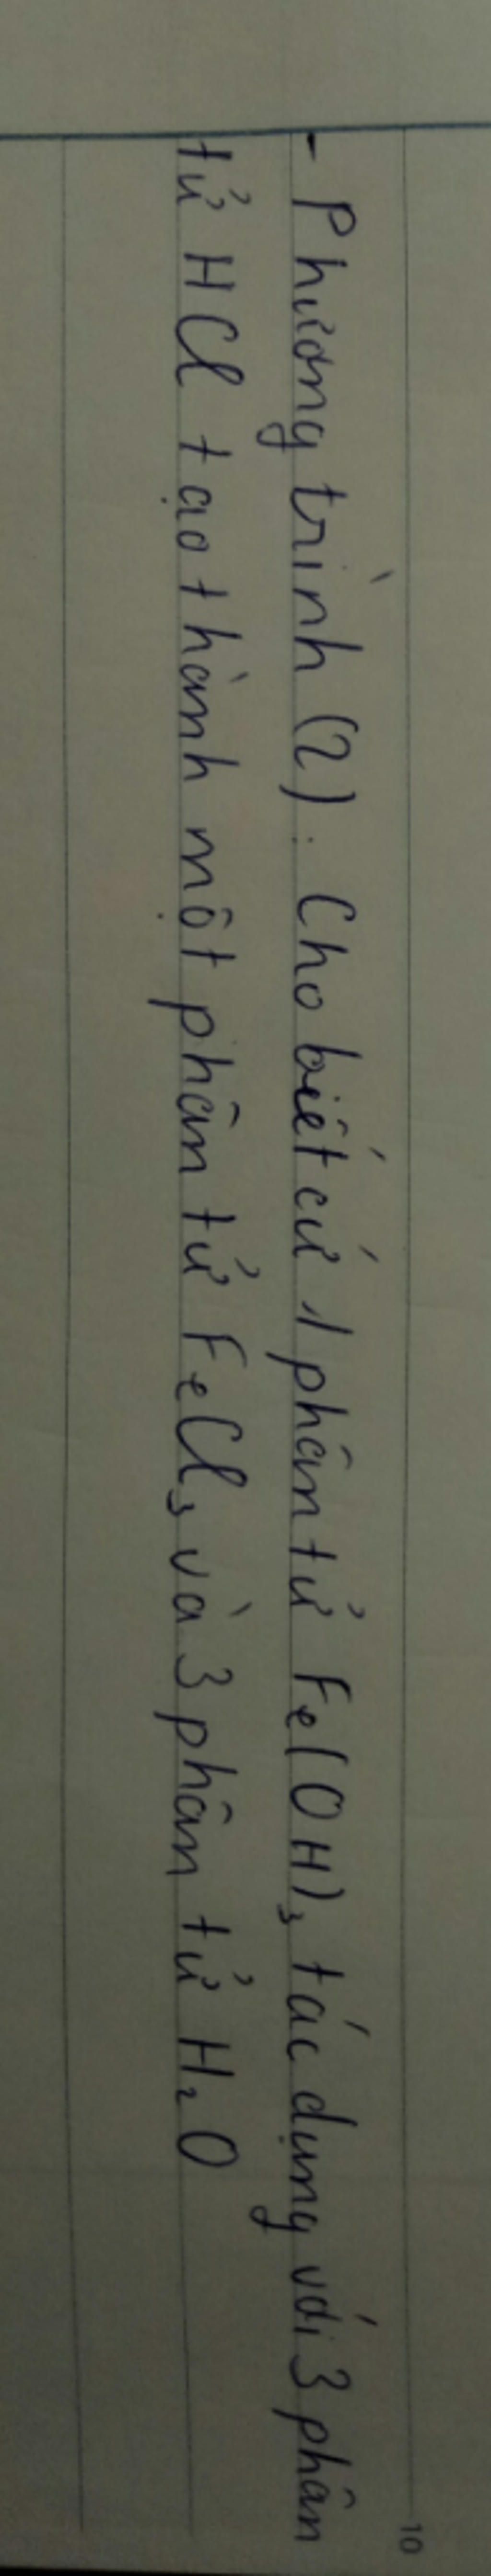 - Phương trình (2): Cho biết cứ 1 phân tử Fe(OH)₃ tác dụng với 3 phân
tử HCl tạo thành một phân tử FeCl₃ và 3 phân tử H₂O
10